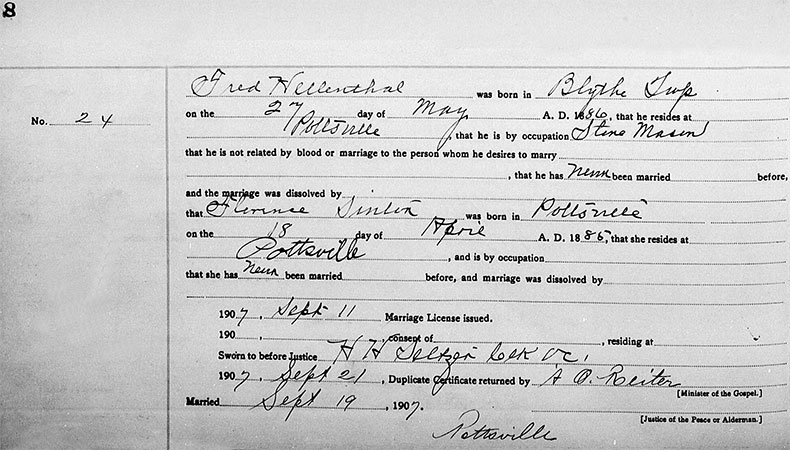 8
No. 24
Fred Hellenthal was born in Blythe Twp
on the 27 day of May A. D. 1886, that he resides at
Pottsville, that he is by occupation Stone Mason
that he is not related by blood or marriage to the person whom he desires to marry
, that he has never been married before,
and the marriage was dissolved by
that Florence was born in Pottsville
on the 18 day of April A. D. 1885, that she resides at
Pottsville, and is by occupation
that she has never been married before, and marriage was dissolved by
1907, Sept 11 Marriage License issued.
190 , , consent of , residing at
Sworn to before Justice H H Seltzer Clk O.C.
1907, Sept 21, Duplicate Certificate returned by A O. Reiter
[Minister of the Gospel.]
Married Sept 19, 1907.
[Justice of the Peace or Alderman.]
Pottsville